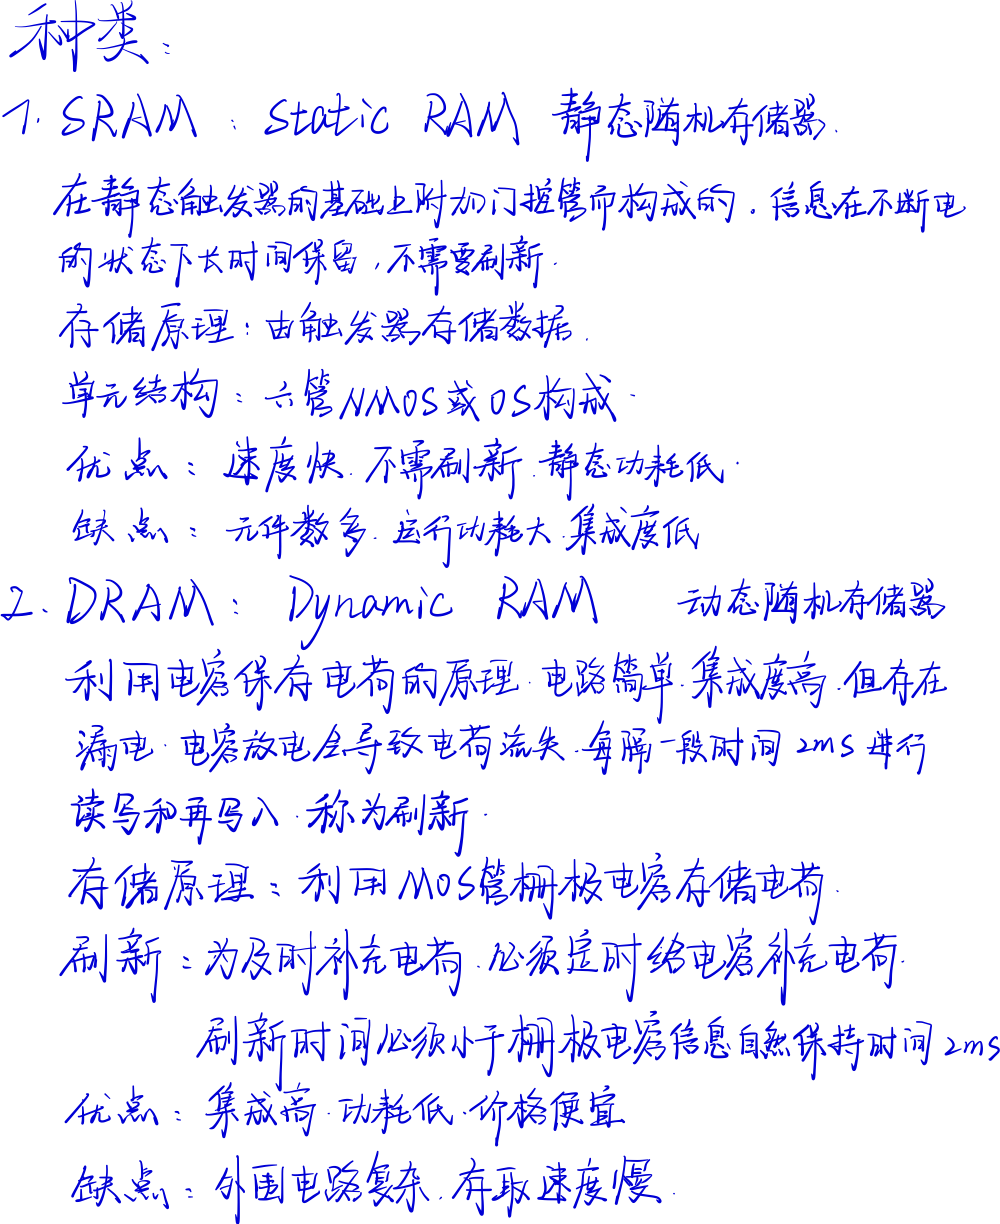 种类：
1. SRAM：Static RAM 静态随机存储器.
在静态触发器的基础上附加门控管而构成的．信息在不断电
的状态下长时间保留，不需要刷新．
存储原理：由触发器存储数据．
单元结构：六管NMOS或OS构成．
优点：速度快．不需刷新．静态功耗低．
缺点：元件数多．运行功耗大．集成度低
2. DRAM：Dynamic RAM 动态随机存储器
利用电容保存电荷的原理．电路简单．集成度高．但存在
漏电．电容放电会导致电荷流失．每隔一段时间2ms进行
读写和再写入．称为刷新．
存储原理：利用MOS管栅极电容存储电荷．
刷新：为及时补充电荷．必须定时给电容补充电荷．
刷新时间必须小于栅极电容信息自然保持时间2ms
优点：集成高．功耗低．价格便宜
缺点：外围电路复杂．存取速度慢．